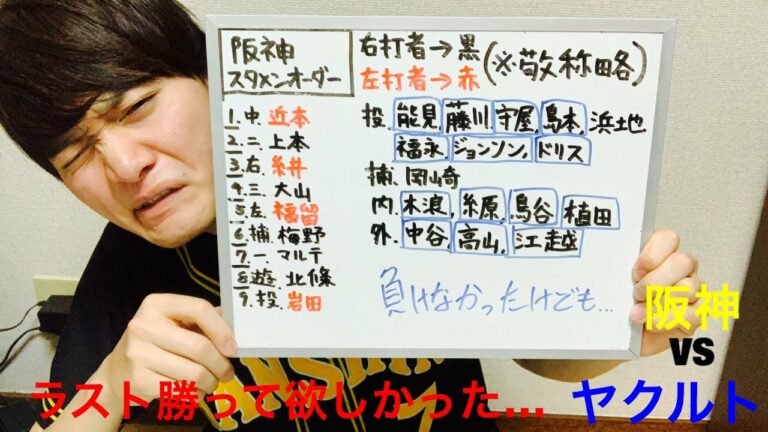 阪神
スタメンオーダー
右打者→黒
左打者→赤
(※敬称略)
1.中.近本
2.二.上本
3.右.糸井
4.三.大山
5.左.福留
6.捕.梅野
7.一.マルテ
8.遊.北條
9.投.岩田
投.能見,藤川,守屋,島本,浜地
福永,ジョンソン,ドリス
捕.岡崎
内.木浪,糸原,鳥谷,植田
外.中谷,高山,江越
負けなかったけども...
阪神
VS
ヤクルト
ラスト勝って欲しかった...